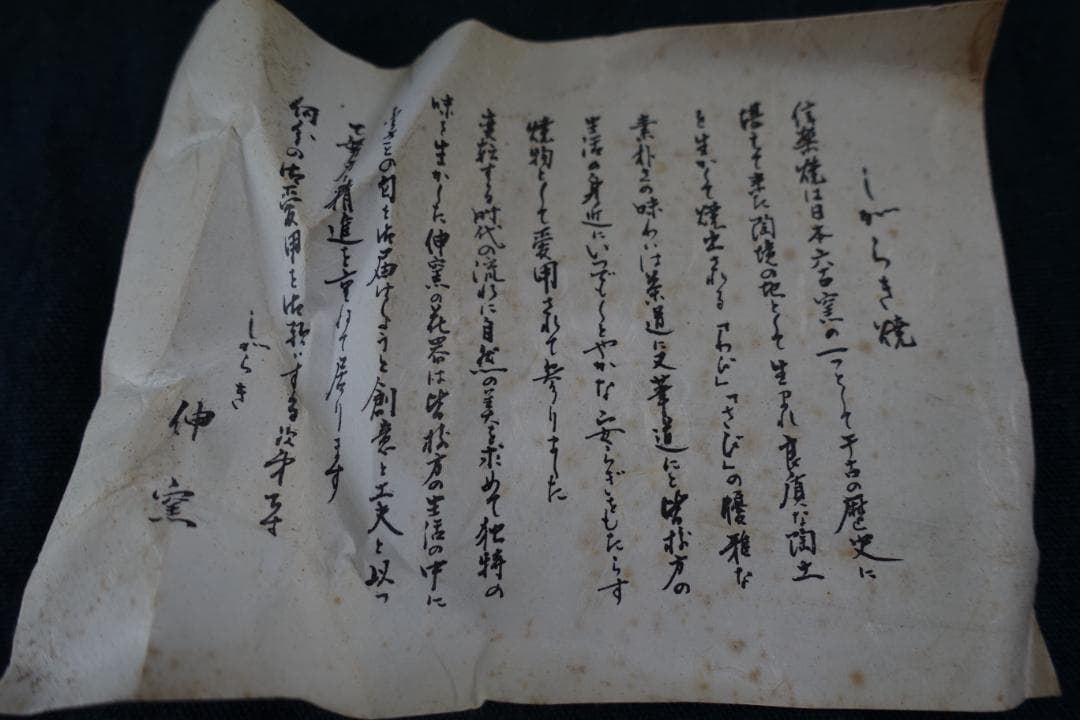 しがらき焼
信楽焼は日本六古窯の一つとして千古の歴史に
堪もて来た陶境の地として生まれ良質な陶土
を生かして焼出される「わび」「さび」の優雅な
素朴との味わいは茶道に又華道にと皆様方の
生活の身近にいつでもしとやかな安らぎをもたらす
焼物として愛用されて参りました
変転する時代の流れに自然の美を求めて独特の
味を生かした伸窯の花器は皆様方の生活の中に
との匂を御届けしようと創意と工夫を以って
精進を重ねて居ります
何分の御愛用を御願いする次第です
しがらき
伸窯